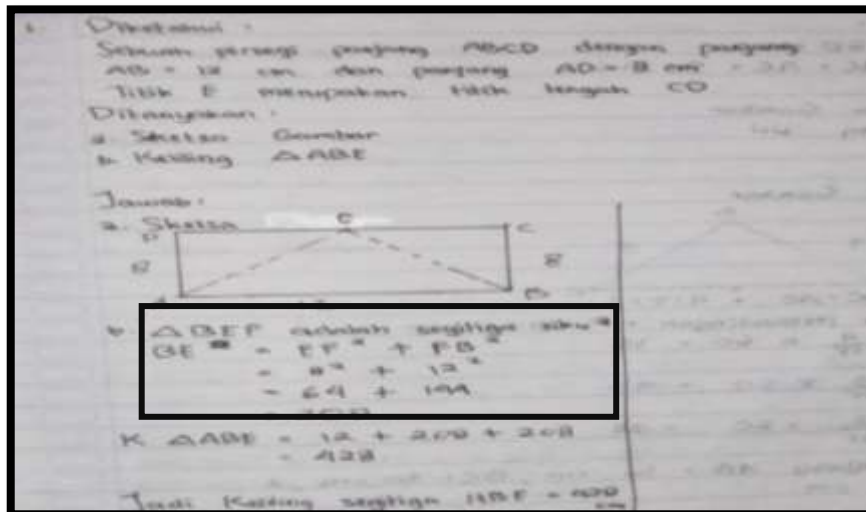 1. Diketahui :
Sebuah persegi panjang ABCD dengan panjang
AB = 12 cm dan panjang AD = 8 cm
Titik E merupakan titik tengah CD
Ditanyakan :
a. Sketsa Gambar
b. Keliling △ABE
Jawab :
a. Sketsa
E
D C
8 8
A B
b. △BEF adalah segitiga siku²
BE² = EF² + FB²
= 8² + 12²
= 64 + 144
= 208
K △ABE = 12 + 208 + 208
= 428
Jadi Keliling segitiga ABE = 428
cm